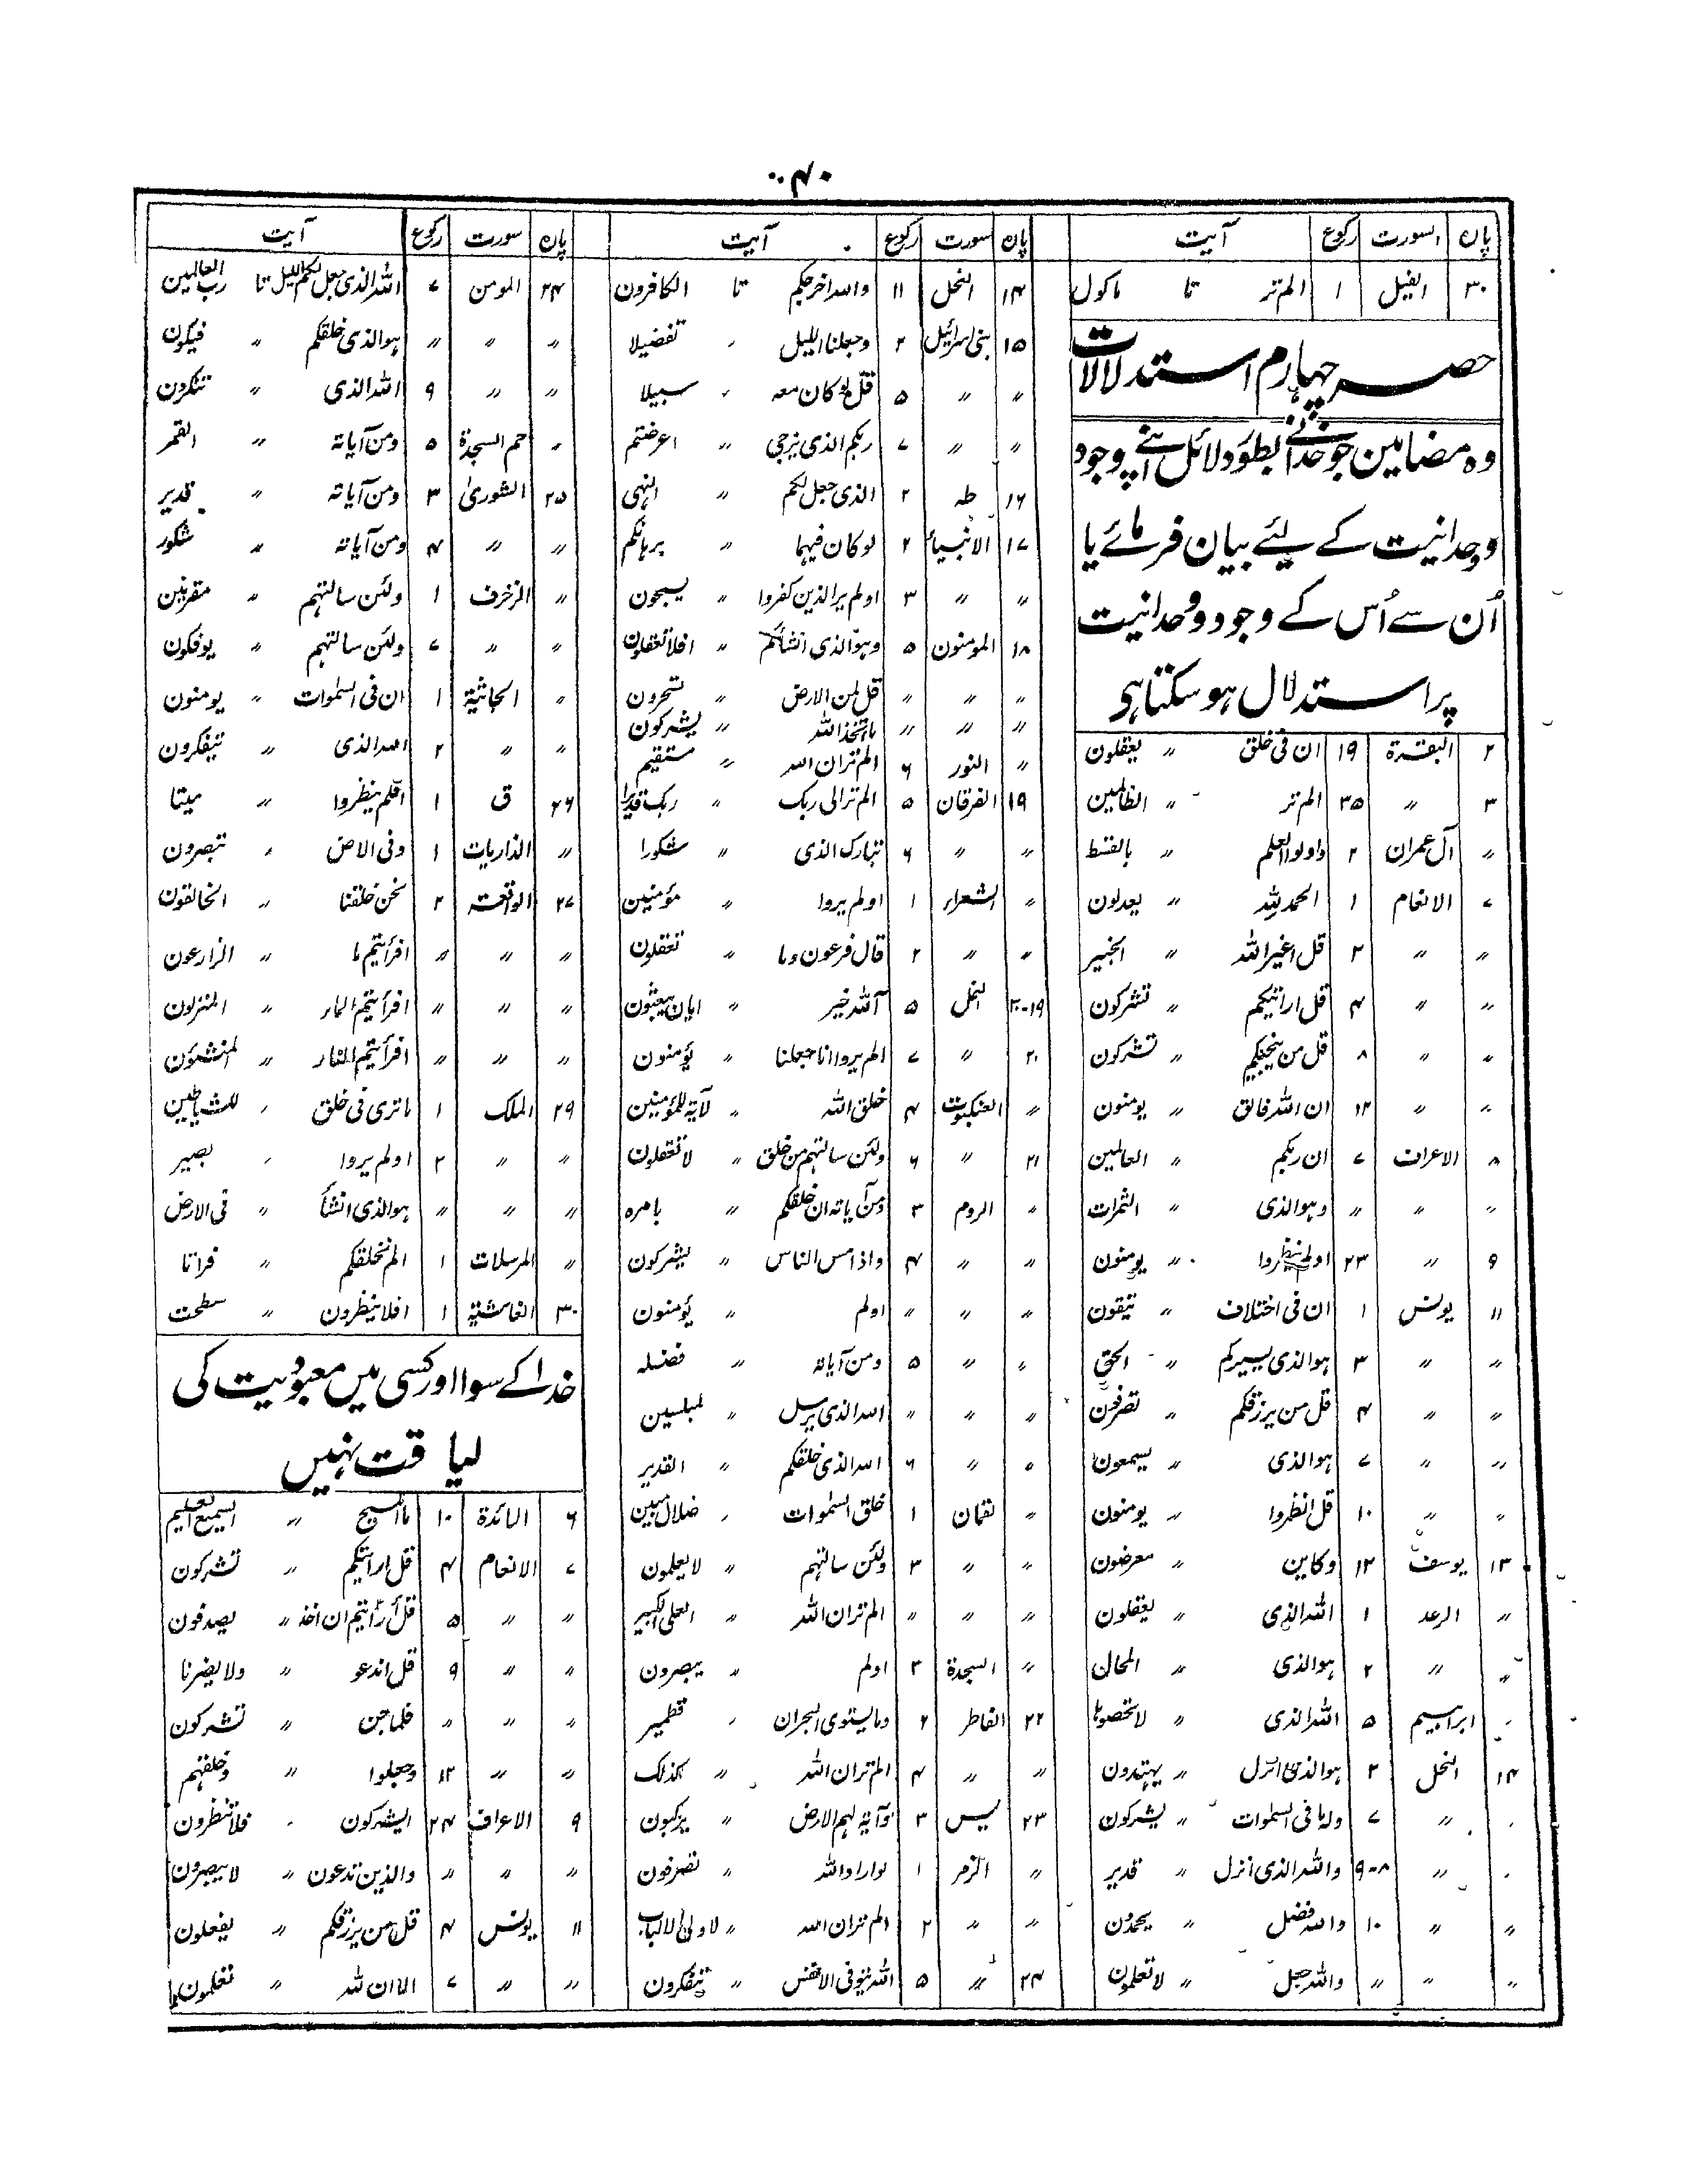 ۴۰
پارہ سورت رکوع آیت
۳۰ الفیل ۱ الم تر تا ماکول
حصہ چہارم استدلالات
وہ مضامین جو خدا نے بطور دلائل اپنے وجود
وحدانیت کے لیئے بیان فرمائے یا
اُن سے اُس کے وجود و وحدانیت
پر استدلال ہو سکتا ہی
۲ البقرة ۱۹ ان فی خلق 〃 یعقلون
۳ 〃 ۳۵ الم تر 〃 الظالمین
〃 آل عمران ۲ واولوا العلم 〃 بالقسط
۷ الانعام ۱ الحمد للہ 〃 یعدلون
〃 〃 ۲ قل اغیر اللہ 〃 الخبیر
〃 〃 ۴ قل ارائیتکم 〃 تشرکون
〃 〃 ۸ قل من ینجیکم 〃 تشرکون
〃 〃 ۱۲ ان اللہ فالق 〃 یومنون
۸ الاعراف ۷ ان ربکم 〃 العالمین
〃 〃 〃 وہوالذی 〃 الثمرات
۹ 〃 ۲۳ اولم ینظروا 〃 یومنون
۱۱ یونس ۱ ان فی اختلاف 〃 یتقون
〃 〃 ۳ ہوالذی یسیرکم 〃 الحق
〃 〃 ۴ قل من یرزقکم 〃 تصرفون
〃 〃 ۷ ہوالذی 〃 یسمعون
〃 〃 ۱۰ قل انظروا 〃 یومنون
۱۳ یوسف ۱۲ وکاین 〃 معرضون
〃 الرعد ۱ اللہ الذی 〃 یعقلون
〃 〃 ۲ ہوالذی 〃 المحال
〃 ابراہیم ۵ اللہ الذی 〃 لا تحصوہا
۱۴ النحل ۲ ہوالذی انزل 〃 یہتدون
〃 〃 ۷ ولہ ما فی السمٰوات 〃 یشرکون
〃 〃 ۸-۹ واللہ الذی انزل 〃 قدیر
〃 〃 ۱۰ واللہ فضل 〃 یجحدون
〃 〃 〃 واللہ جعل 〃 لا تعلمون
پارہ سورت رکوع آیت
۱۴ النحل ۱۱ واللہ اخرجکم تا الکافرون
۱۵ بنی اسرائیل ۲ وجعلنا اللیل 〃 تفضیلا
〃 〃 ۵ قل لو کان معہ 〃 سبیلا
〃 〃 ۷ ربکم الذی یزجی 〃 اعرضتم
۱۶ طہ ۲ الذی جعل لکم 〃 النہی
۱۷ الانبیاء ۲ لو کان فیہما 〃 برہانکم
〃 〃 ۳ اولم یر الذین کفروا 〃 یسبحون
۱۸ المومنون ۵ وہوالذی انشألکم 〃 افلا تعقلون
〃 〃 〃 قل لمن الارض 〃 تسحرون
〃 〃 〃 ما اتخذ اللہ 〃 یشرکون
〃 النور ۶ الم تر ان اللہ 〃 مستقیم
۱۹ الفرقان ۵ الم تر الی ربک 〃 ربک قدیرا
〃 〃 ۶ تبارک الذی 〃 شکورا
〃 الشعراء ۱ اولم یروا 〃 مؤمنین
〃 〃 ۲ قال فرعون وما 〃 تعقلون
۱۹-۲۰ النمل ۵ آللہ خیر 〃 ایان یبعثون
۲۰ 〃 ۷ الم یروا انا جعلنا 〃 یؤمنون
〃 العنکبوت ۴ خلق اللہ 〃 لآیة للمؤمنین
۲۱ 〃 ۶ ولئن سالتہم من خلق 〃 لا تعقلون
〃 الروم ۳ ومن آیاتہ ان خلقکم 〃 بامرہ
〃 〃 ۴ واذا مس الناس 〃 یشرکون
〃 〃 〃 اولم 〃 یؤمنون
〃 〃 ۵ ومن آیاتہ 〃 فضلہ
〃 〃 〃 اللہ الذی یرسل 〃 لمبلسین
〃 〃 ۶ اللہ الذی خلقکم 〃 القدیر
〃 لقمان ۱ خلق السمٰوات 〃 ضلال مبین
〃 〃 ۳ ولئن سالتہم 〃 لا یعلمون
〃 〃 〃 الم تر ان اللہ 〃 العلی الکبیر
〃 السجدة ۳ اولم 〃 یبصرون
۲۲ الفاطر ۲ وما یستوی البحران 〃 قطمیر
〃 〃 ۴ الم تر ان اللہ 〃 کذلک
۲۳ یٰس ۳ وآیة لہم الارض 〃 یرکبون
〃 الزمر ۱ لو اراد اللہ 〃 تصرفون
〃 〃 ۲ الم تر ان اللہ 〃 لاولی الالباب
۲۴ 〃 ۵ اللہ یتوفی الانفس 〃 یتفکرون
پارہ سورت رکوع آیت
۲۴ المومن ۷ اللہ الذی جعل لکم اللیل تا رب العالمین
〃 〃 〃 ہوالذی خلقکم 〃 فیکون
〃 〃 ۹ اللہ الذی 〃 تنکرون
〃 حم السجدة ۵ ومن آیاتہ 〃 القمر
۲۵ الشوریٰ ۳ ومن آیاتہ 〃 قدیر
〃 〃 ۴ ومن آیاتہ 〃 شکور
〃 الزخرف ۱ ولئن سالتہم 〃 مقرنین
〃 〃 ۷ ولئن سالتہم 〃 یوفکون
〃 الجاثیة ۱ ان فی السمٰوات 〃 یومنون
〃 〃 ۲ اللہ الذی 〃 یتفکرون
۲۶ ق ۱ افلم ینظروا 〃 میتا
〃 الذاریات ۱ وفی الارض 〃 تبصرون
۲۷ الواقعہ ۲ نحن خلقنا 〃 الخالقون
〃 〃 〃 افرأیتم ما 〃 الزارعون
〃 〃 〃 افرأیتم الماء 〃 المنزلون
〃 〃 〃 افرأیتم النار 〃 المنشئون
۲۹ الملک ۱ ما تری فی خلق 〃 للشیاطین
〃 〃 ۲ اولم یروا 〃 بصیر
〃 〃 〃 ہوالذی انشأ 〃 فی الارض
〃 المرسلات ۱ الم نخلقکم 〃 فراتا
۳۰ الغاشیة ۱ افلا ینظرون 〃 سطحت
خدا کے سوا اور کسی میں معبودیت کی
لیاقت نہیں
۶ المائدة ۱۰ ما المسیح 〃 السمیع العلیم
۷ الانعام ۴ قل ارایتکم 〃 تشرکون
〃 〃 ۵ قل أرأیتم ان اخذ 〃 یصدفون
〃 〃 ۹ قل اندعو 〃 ولا یضرنا
〃 〃 〃 فلما جن 〃 تشرکون
〃 〃 ۱۲ وجعلوا 〃 وخلقہم
۹ الاعراف ۲۴ ایشرکون 〃 فلا تنظرون
〃 〃 〃 والذین تدعون 〃 لا یبصرون
۱۱ یونس ۴ قل من یرزقکم 〃 یفعلون
〃 〃 ۷ الا ان للہ 〃